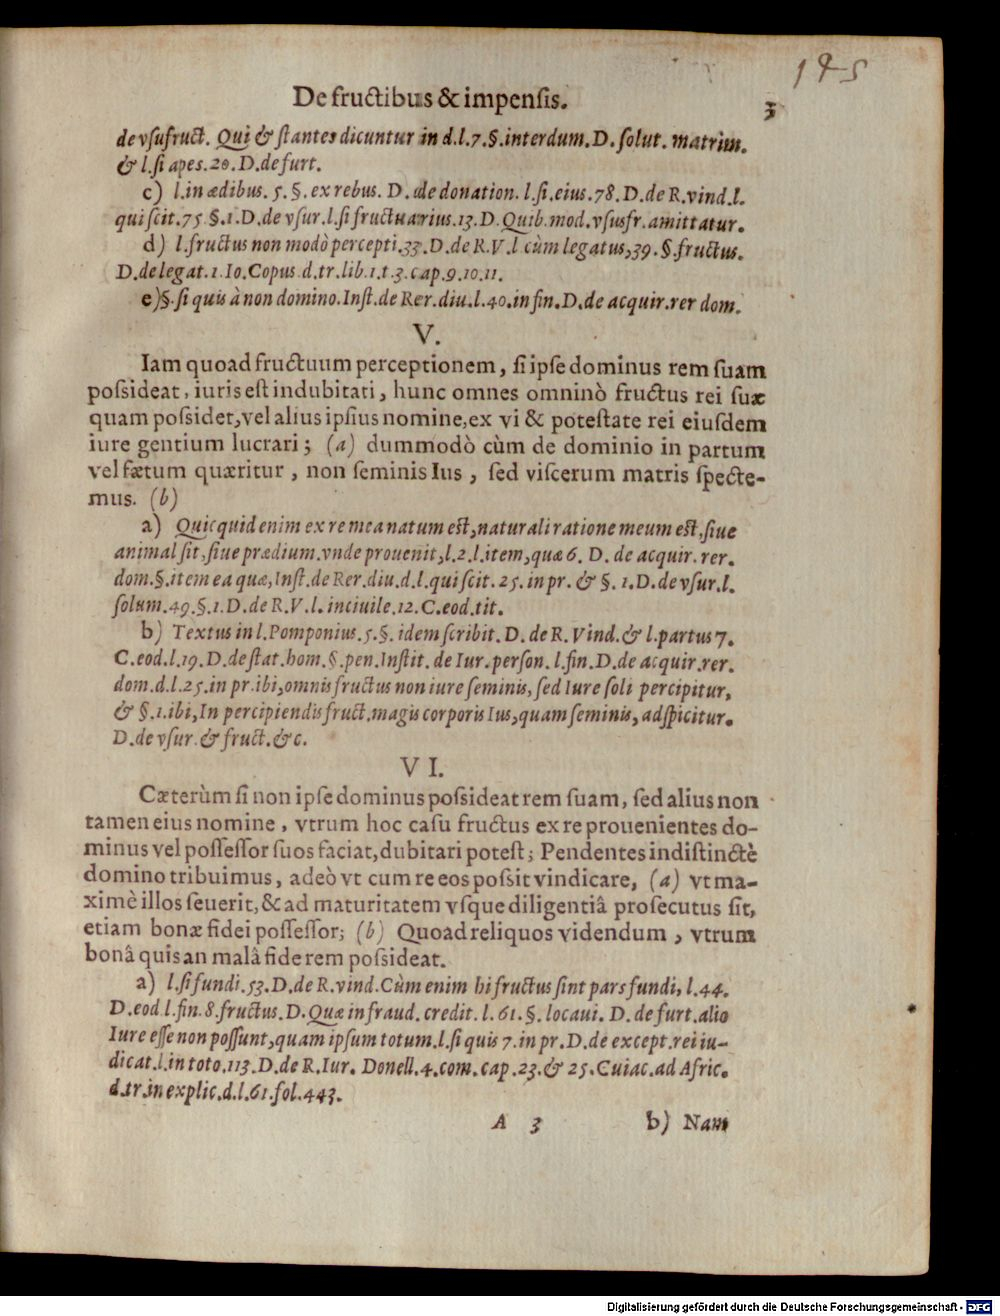 195
De fructibus & impensis.
3
de vſufruct. Qui & ſtantes dicuntur in d.l.7.§.interdum.D. ſolut. matrim.
& l.ſi apes.20.D.defurt.
c) l.in ædibus. 5. §. ex rebus. D. de donation. l.ſi.eius.78.D.de R.vind.l.
qui ſcit.75.§.1.D.de vſur.l.ſi fructuarius.13.D.Quib.mod.vſusfr.amittatur.
d) l.fructus non modò percepti.33.D.de R.V.l cùm legatus,39.§.fructus.
D.de legat.1.Io.Copus d.tr.lib.1.t.3.cap.9.10.11.
e)§.ſi quis à non domino.Inſt.de Rer.diu.l.40.in fin.D.de acquir.rer dom.
V.
Iam quoad fructuum perceptionem, ſi ipſe dominus rem ſuam
poſsideat, iuris eſt indubitati, hunc omnes omninò fructus rei ſuæ
quam poſsidet,vel alius ipſius nomine,ex vi & poteſtate rei eiuſdem
iure gentium lucrari; (a) dummodò cùm de dominio in partum
vel fætum quæritur, non ſeminis Ius, ſed viſcerum matris ſpecte-
mus. (b)
a) Quicquid enim ex re mea natum eſt,naturali ratione meum eſt,ſiue
animal ſit,ſiue prædium.vnde prouenit,l.2.l.item,quæ 6. D. de acquir.rer.
dom.§.item ea quæ,Inſt.de Rer.diu.d.l.qui ſcit. 25. in pr. & §. 1.D.de vſur.l.
ſolum.49.§.1.D.de R.V.l.inciuile.12.C.eod.tit.
b) Textus in l.Pomponius.5.§. idem ſcribit. D. de R. Vind.& l.partus 7.
C.eod.l.19.D.de ſtat.hom.§.pen.Inſtit. de Iur. perſon. l.fin.D.de acquir.rer.
dom.d.l.25.in pr.ibi,omnis fructus non iure ſeminis, ſed Iure ſoli percipitur,
& §.1.ibi,In percipiendis fruct.magis corporis Ius,quam ſeminis, adſpicitur.
D.de vſur.& fruct.&c.
VI.
Cæterùm ſi non ipſe dominus poſsideat rem ſuam, ſed alius non
tamen eius nomine, vtrum hoc caſu fructus ex re prouenientes do-
minus vel poſſeſſor ſuos faciat,dubitari poteſt; Pendentes indiſtinctè
domino tribuimus, adeò vt cum re eos poſsit vindicare, (a) vt ma-
ximè illos ſeuerit,& ad maturitatem vſque diligentiâ proſecutus ſit,
etiam bonæ fidei poſſeſſor; (b) Quoad reliquos videndum, vtrum
bonâ quis an malâ fide rem poſsideat.
a) l.ſi fundi.53.D.de R.vind.Cùm enim hi fructus ſint pars fundi, l.44.
D.eod.l.fin.8.fructus.D.Quæ in fraud. credit. l.61.§. locaui. D. de furt.alio
Iure eſſe non poſſunt,quam ipſum totum.l.ſi quis 7.in pr.D.de except.rei iu-
dicat.l.in toto.113.D.de R.Iur. Donell.4.com.cap.23.& 25.Cuiac.ad Afric.
d.tr.in explic.d.l.61.fol.443.
A 3 b) Nam
Digitalisierung gefördert durch die Deutsche Forschungsgemeinschaft - DFG